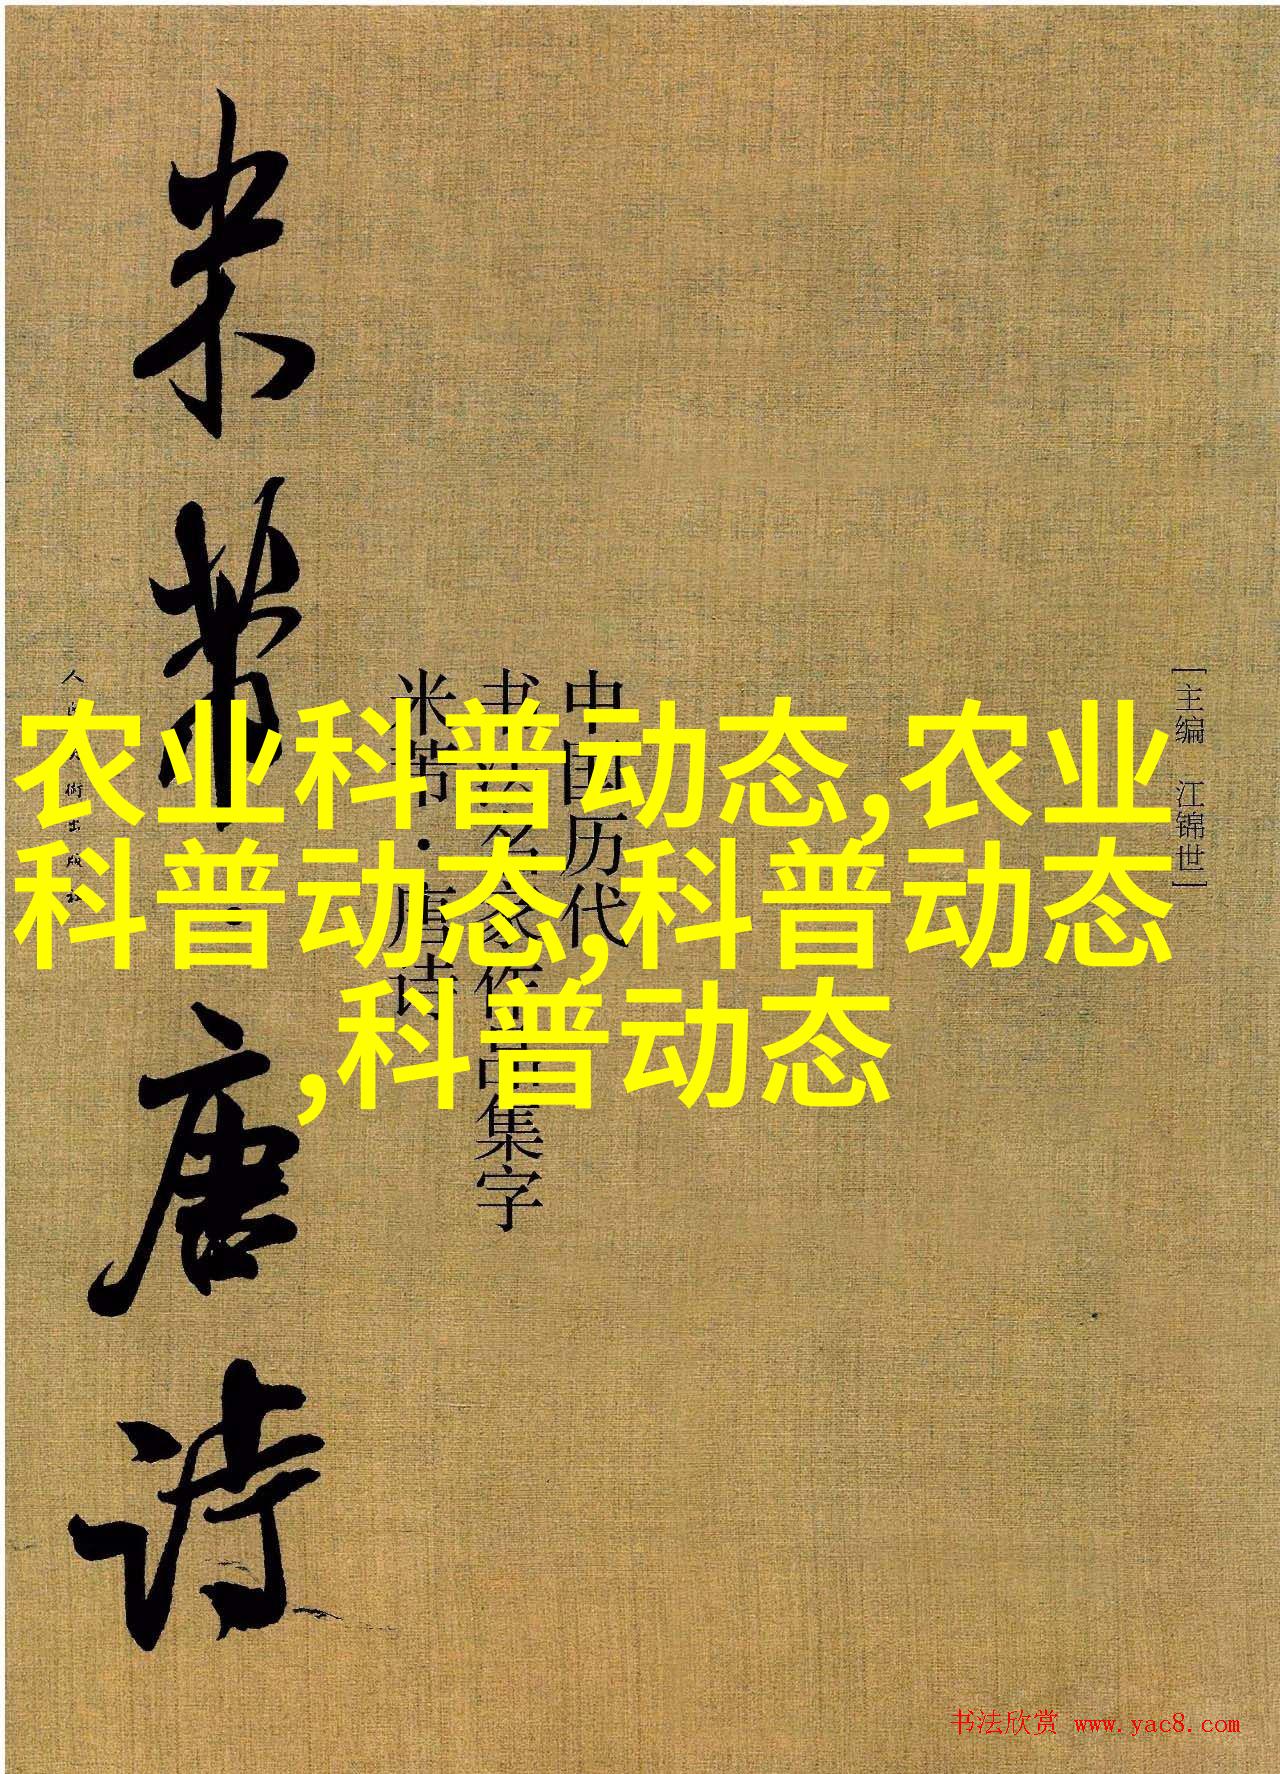 农业科普动态,农业
科普动态,科普动态
,科普动态
米芾·唐诗
中国历代
书法名家作品集字
米芾·唐诗
[主编 江锦世]
人民美术出版社
书法欣赏 www.yac8.com